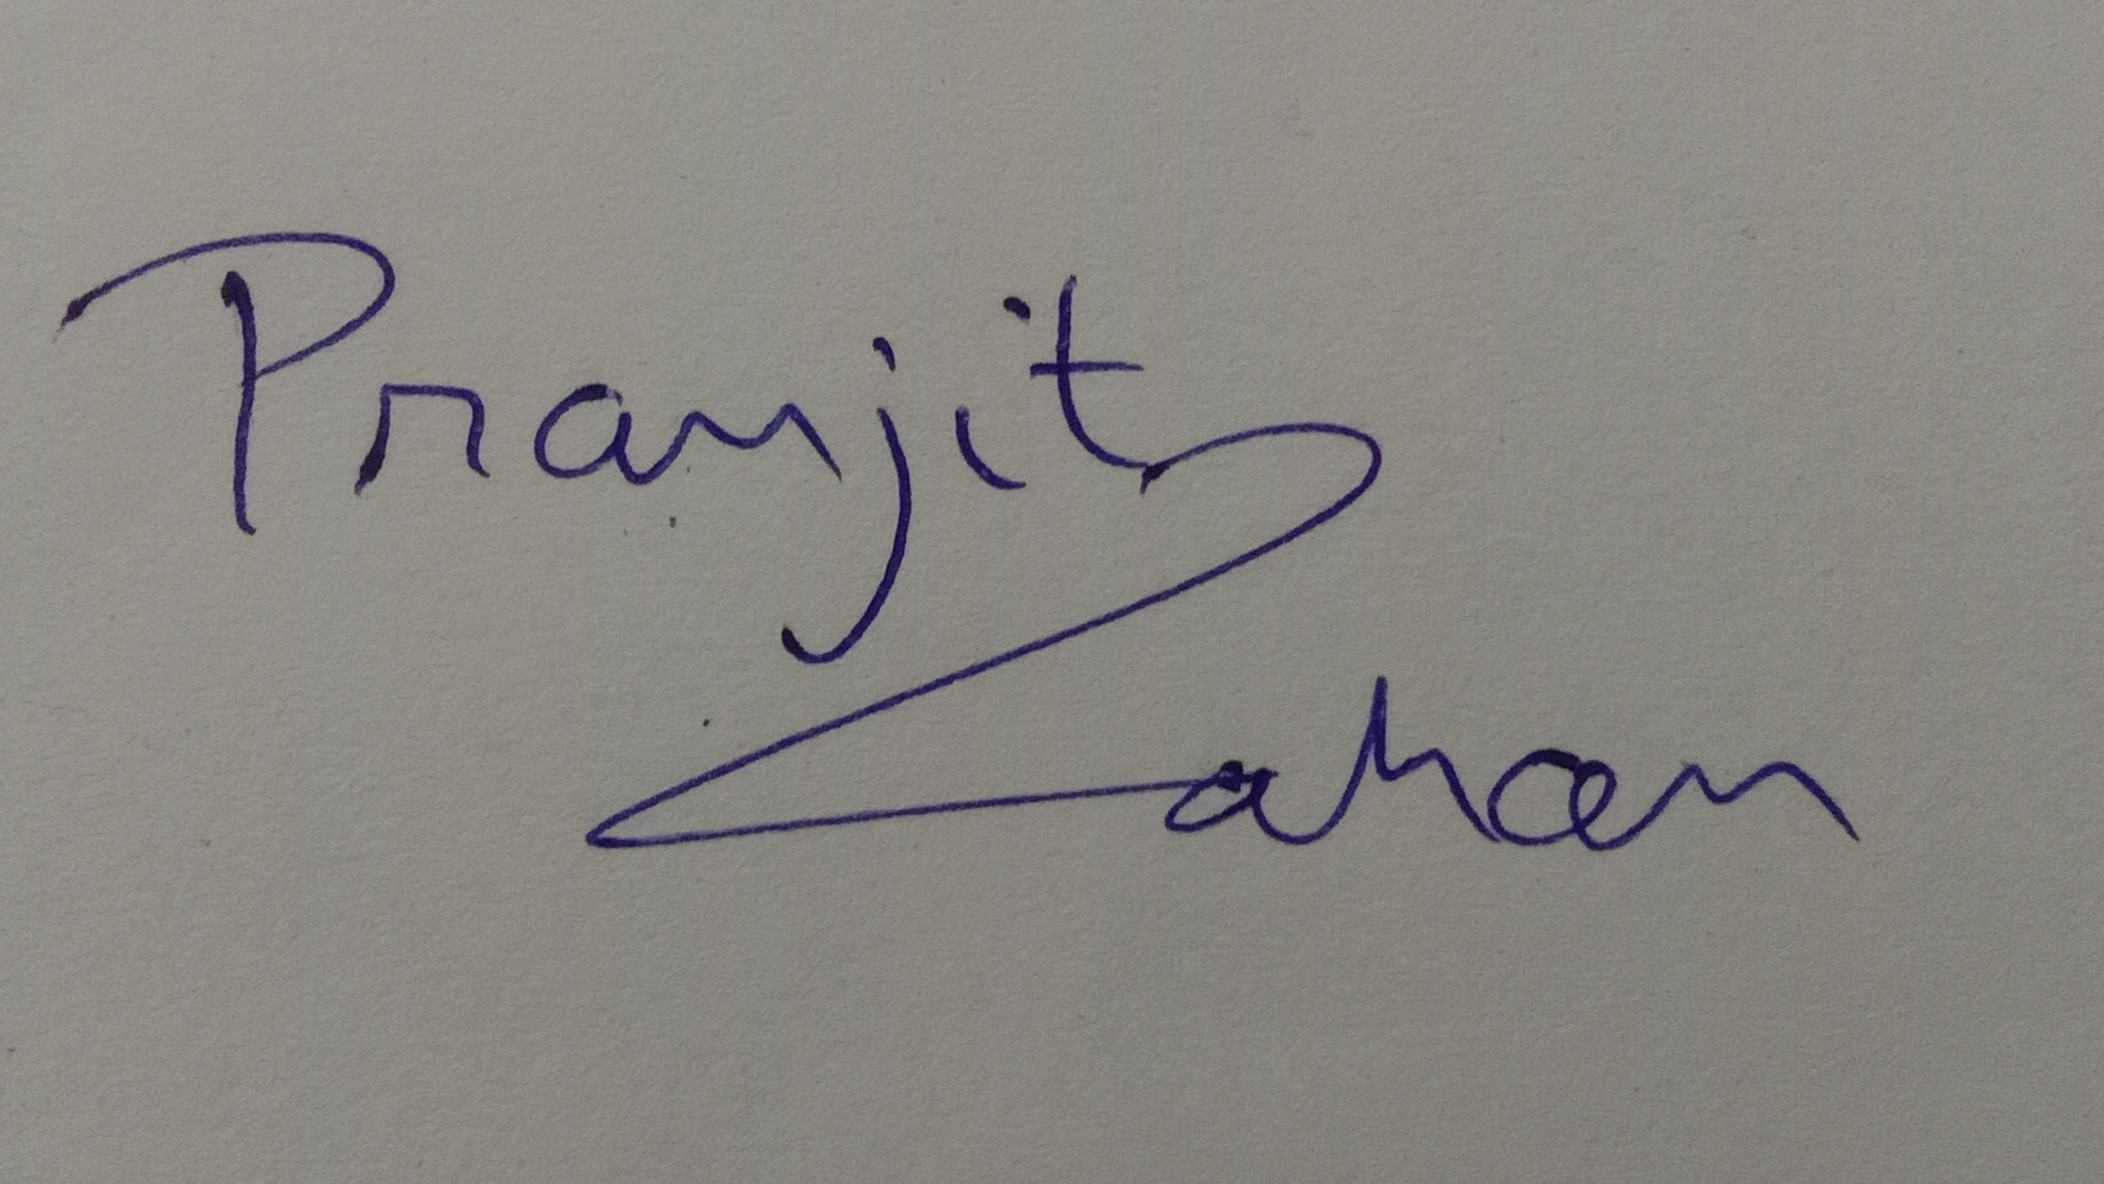 Pranjit
Lahan